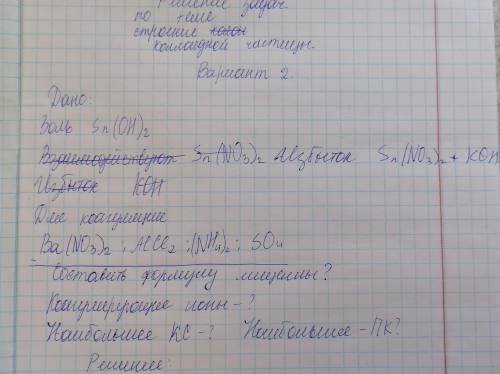 Решение задач
по теме
строение
коллоидной частицы.
Вариант 2.
Дано:
Золь Sn(OH)2
Взаимодействуют Sn(NO3)2 Избыток Sn(NO3)2 + KOH
Избыток KOH
Для коагуляции
Ba(NO3)2; AlCl2; (NH4)2; SO4
Составить формулу мицеллы?
Коагулирующие ионы-?
Наибольшее КС-? Наибольшее-ПК?
Решение: